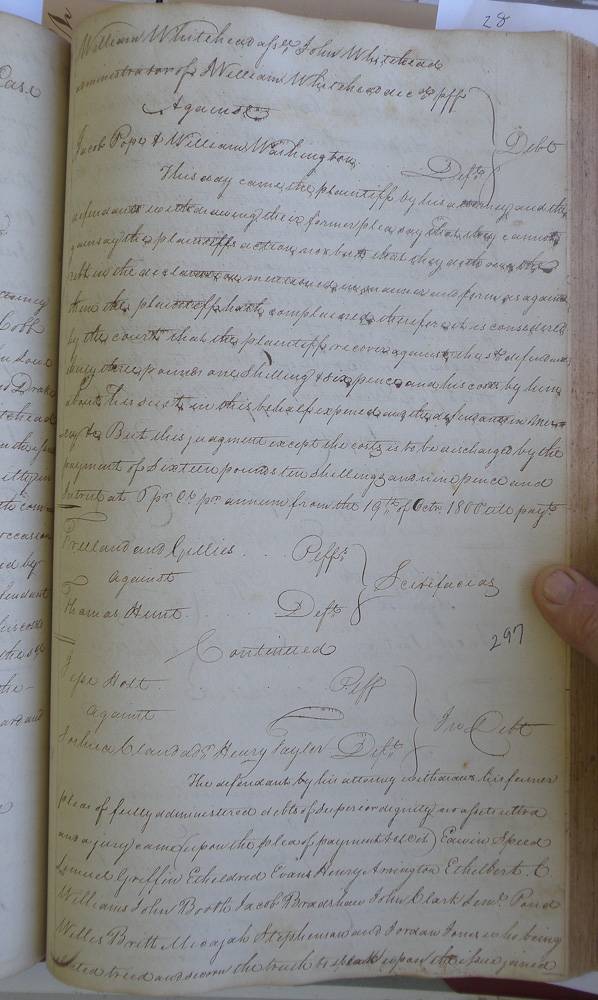 28
William Whitehead assee. John Whitehead
administrator of William Whitehead decd. plff
Against
Debt
Jacob Pope & William Washington Defts
This day came the plaintiff by his attorney and the
defendants withdrawing their former plea say that they cannot
gainsay the plaintiffs action nor but that they doth owe the
debt in the declaration mentioned in manner and form as against
them the plaintiff hath complained therefore it is considered
by the court that the plaintiff recover against the sd. defendants
thirty three pounds one shilling & six pence and his costs by him
about his suit in this behalf expended and the defendants in mer-
cy &c. But this judgment except the costs is to be discharged by the
payment of Sixteen pounds ten shillings and nine pence and
Intrest at 5 pr. Ct. pr annum from the 19th. of Octr. 1800 till payt.
Freeland and Gillies Plffs
against
Scirifacias
Thomas Hunt Deft
Continued
297
Jese Holt Plff
against
In Debt
Joshua Claud adr. Henry Taylor Deft.
The defendant by his attorney withdraws his former
pleas of fully administered debts of superior dignity no assets ultra
and a jury came (upon the plea of payment & set off) Edwin Speed
Lemuel Griffin Etheldred Evans Henry Arrington Ethelbert C.
Williams John Booth Jacob Bradshaw John Clark Leml. Pond
Willis Britt Micajah Stephenson and Jordan Jones who being
elected tried and sworn the truth to speak upon the issue joined